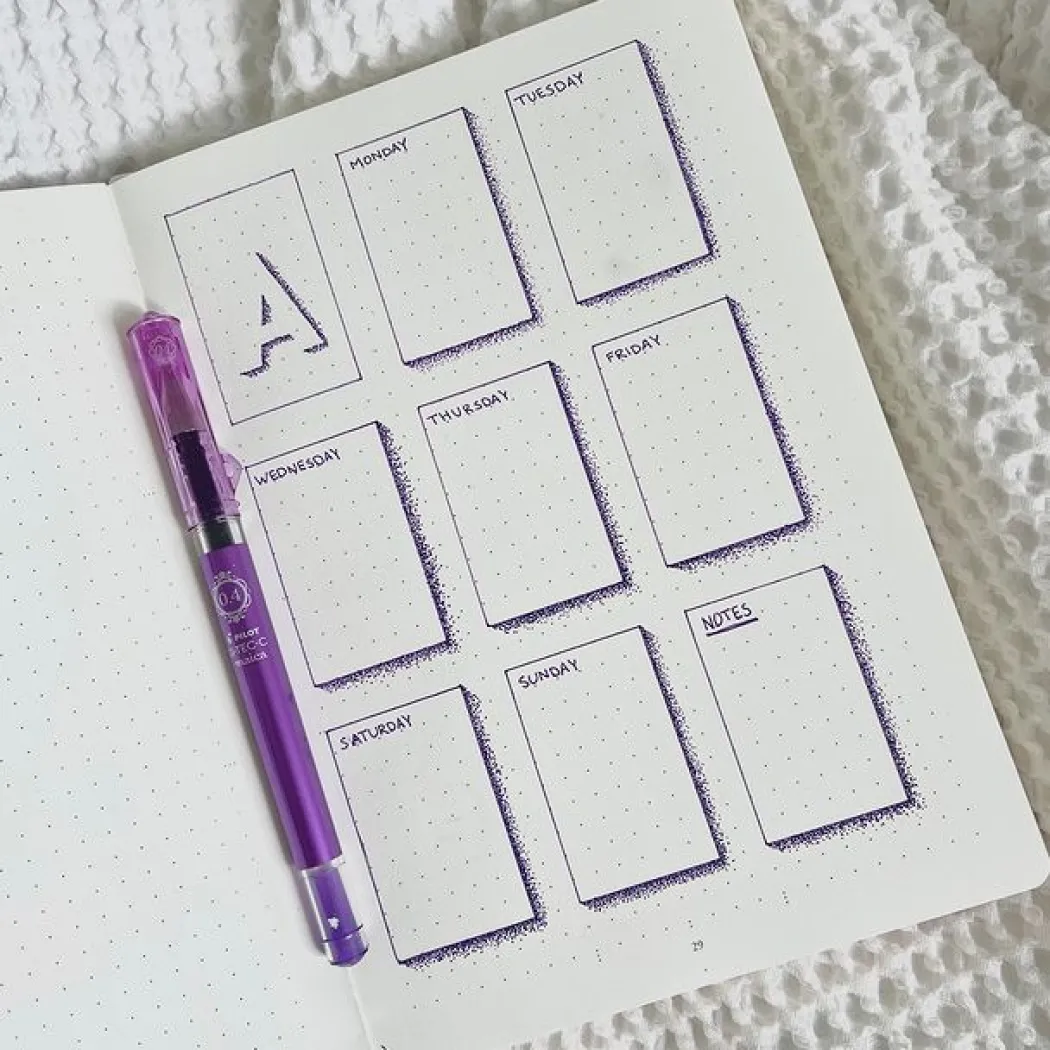 A
MONDAY
TUESDAY
WEDNESDAY
THURSDAY
FRIDAY
SATURDAY
SUNDAY
NOTES
0.4
PILOT
TEC-C
29